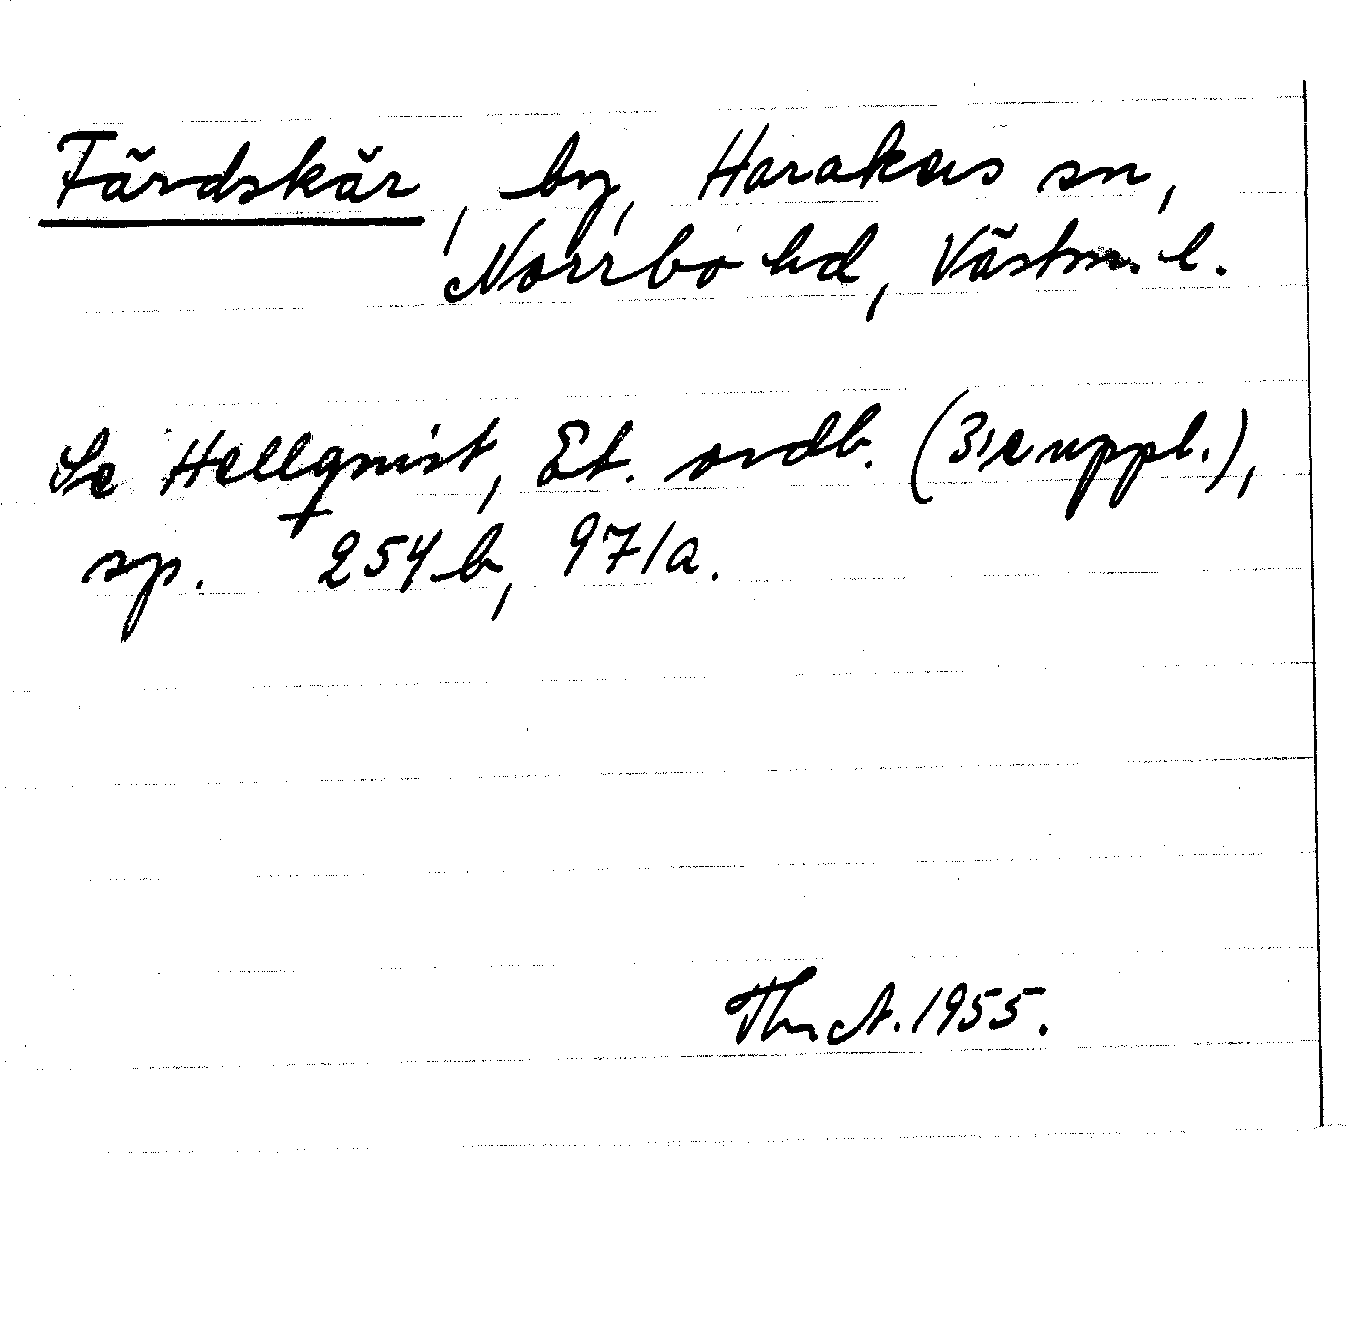 Färdskär, by, Harakers sn,
Norrbo hd, Västm. l.
Se Hellqvist, Et. ordb. (3:e uppl.),
sp. 254 b, 971a.
1955.